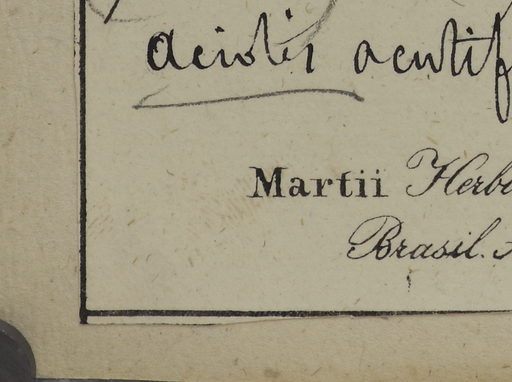 Aciotis acutif
Martii Herb
Brasil.